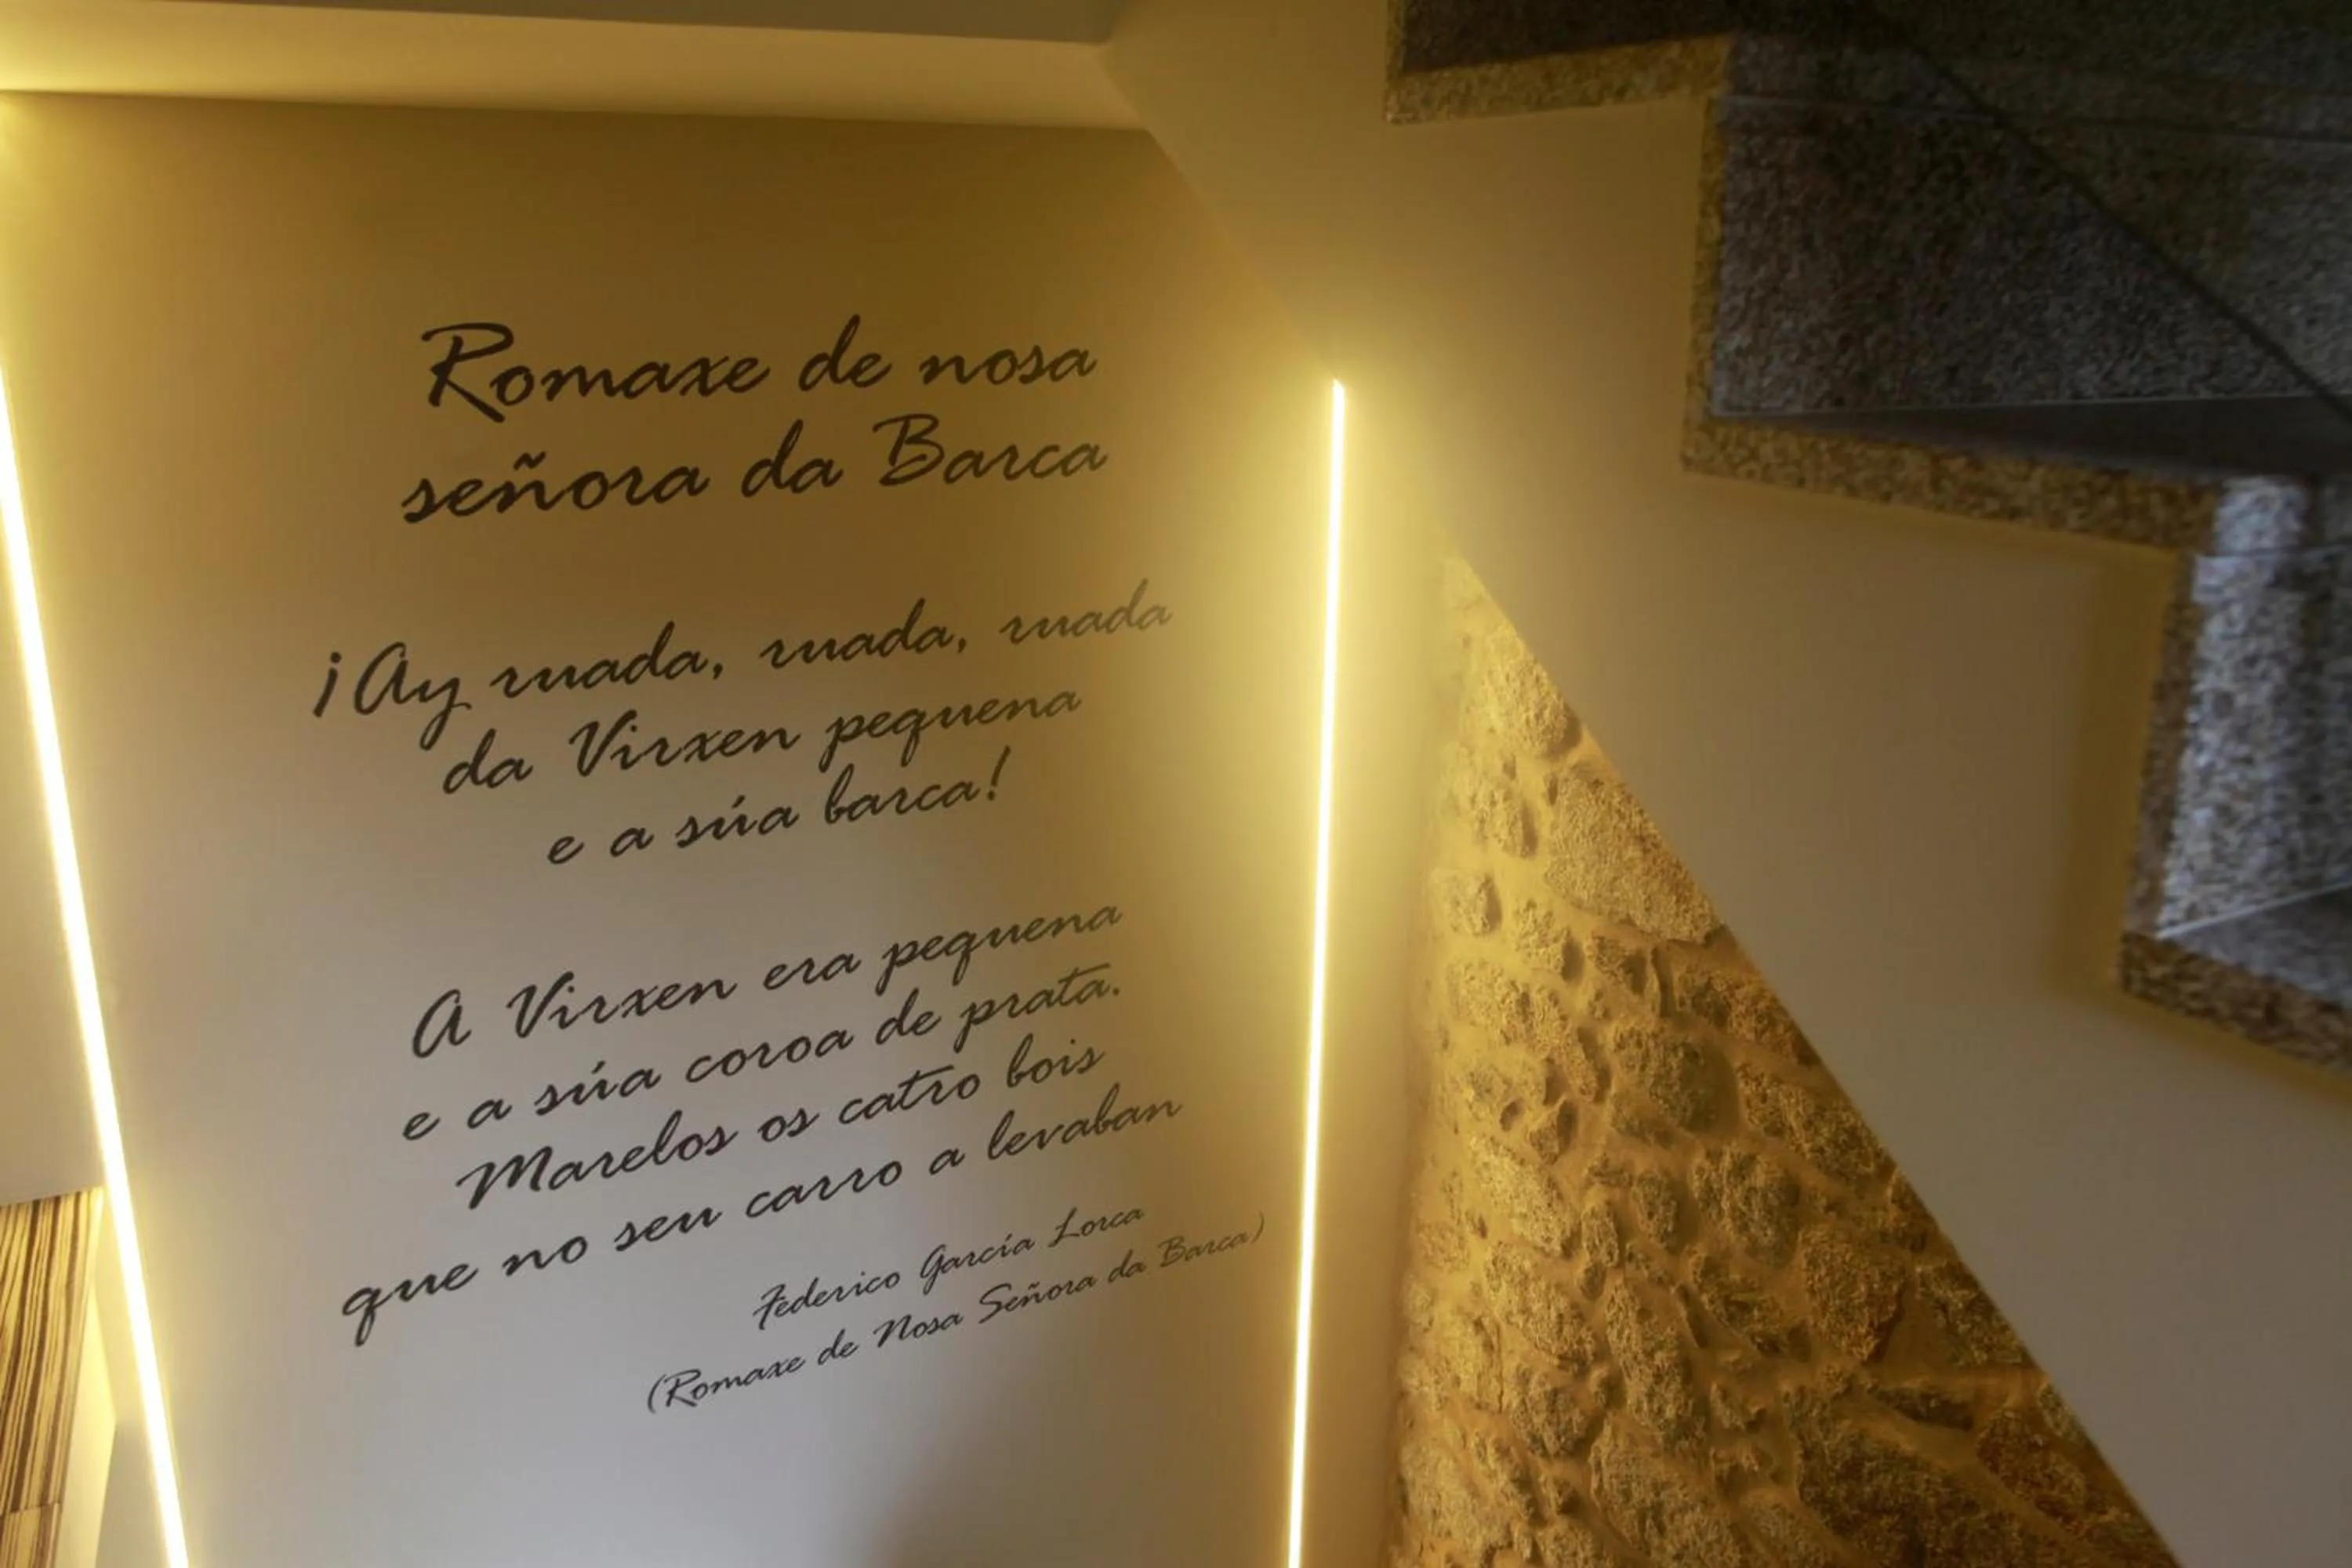 Romaxe de nosa
señora da Barca
¡Ay ruada, ruada, ruada
da Virxen pequena
e a súa barca!
A Virxen era pequena
e a súa coroa de prata.
Marelos os catro bois
que no seu carro a levaban
Federico García Lorca
(Romaxe de Nosa Señora da Barca)